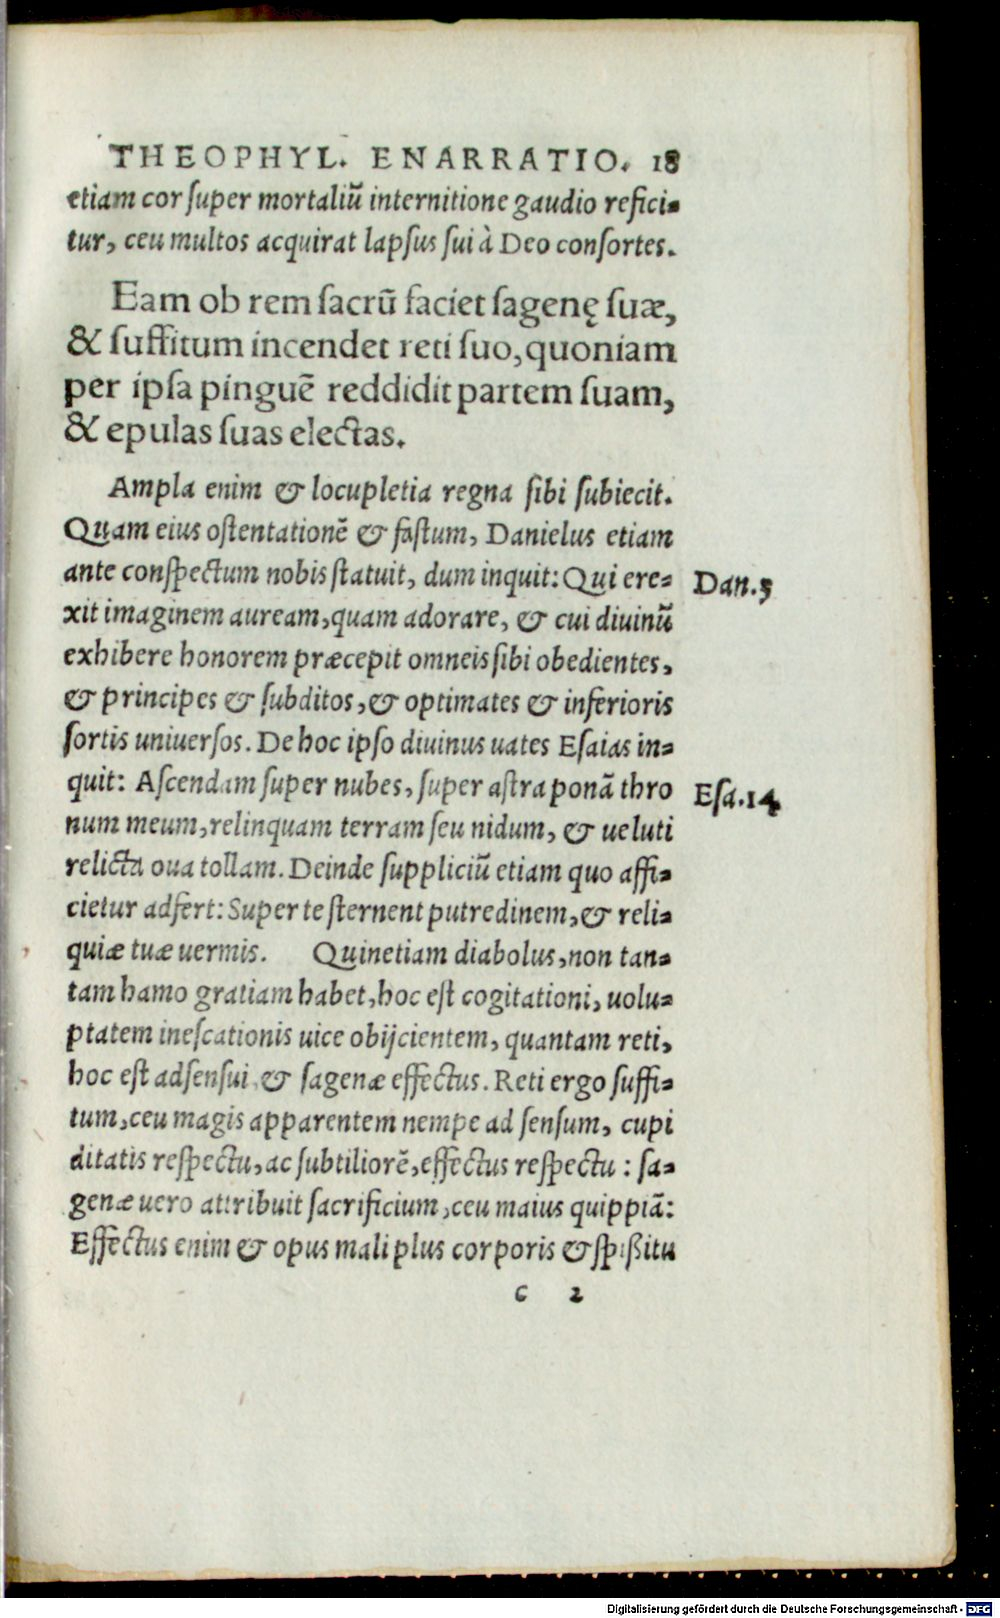 THEOPHYL. ENARRATIO. 18
etiam cor super mortaliũ internitione gaudio refici-
tur, ceu multos acquirat lapsus sui à Deo consortes.
Eam ob rem sacrũ faciet sagenę suæ,
& suffitum incendet reti suo, quoniam
per ipsa pinguẽ reddidit partem suam,
& epulas suas electas.
Ampla enim & locupletia regna sibi subiecit.
Quam eius ostentationẽ & fastum, Danielus etiam
ante conspectum nobis statuit, dum inquit: Qui ere-
Dan.3
xit imaginem auream, quam adorare, & cui diuinũ
exhibere honorem præcepit omneis sibi obedientes,
& principes & subditos, & optimates & inferioris
sortis uniuersos. De hoc ipso diuinus uates Esaias in-
quit: Ascendam super nubes, super astra ponã thro
Esa.14
num meum, relinquam terram seu nidum, & ueluti
relicta oua tollam. Deinde suppliciũ etiam quo affi-
cietur adfert: Super te sternent putredinem, & reli-
quiæ tuæ uermis. Quinetiam diabolus, non tan-
tam hamo gratiam habet, hoc est cogitationi, uolu-
ptatem inescationis uice obijcientem, quantam reti,
hoc est adsensui, & sagenæ effectus. Reti ergo suffi-
tum, ceu magis apparentem nempe ad sensum, cupi
ditatis respectu, ac subtiliorẽ, effectus respectu: sa-
genæ uero attribuit sacrificium, ceu maius quippiã:
Effectus enim & opus mali plus corporis & spißitu
c 2
Digitalisierung gefördert durch die Deutsche Forschungsgemeinschaft - DFG